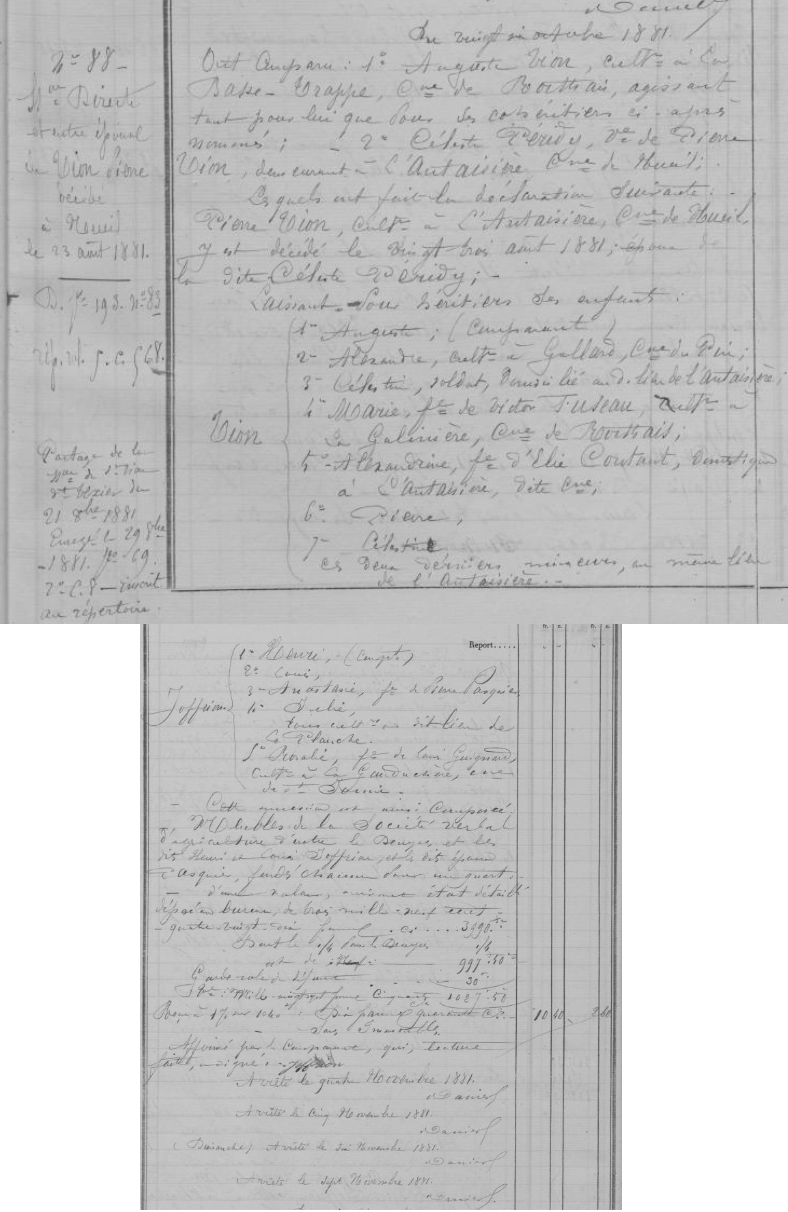 Du vingt six octobre 1881.
N° 88 -
Son Directe
et entre époux
de Vion Pierre
décédé
à Nueil
le 23 août 1881.
D. f° 193. n° 83
rép. vol. 5. C. 568.
Partage de la
de
du
21 8bre 1881
Enreg. le 29 8bre
- 1881. f° 69
2° C. 8 - inscrit
au répertoire.
Ont Comparu : 1° Auguste Vion, cultr à La
Basse-Trappe, Cne de Rorthais, agissant
tant pour lui que pour ses cohéritiers ci-après
nommés ; - 2° Céleste Péridy, Ve de Pierre
Vion, demeurant à L'Autaisière Cne de Nueil ;
Lesquels ont fait la déclaration suivante : -
Pierre Vion, cultr à L'Autaisière, Cne de Nueil,
y est décédé le vingt trois août 1881 ; époux de
la dite Céleste Péridy ; -
Laissant pour héritiers ses enfants :
1° Auguste ; (Comparant)
2° Alexandre, cultr à Gallard, Cne du Pin ;
3° Célestin, soldat, domicilié aud. lieu de l'Autaisière ;
4° Marie, fe de Victor Fuseau, cultr à
La Galinière, Cne de Rorthais ;
Vion
5° Alexandrine, fe d'Elie Coutant, domestique
à L'Autaisière, dite Cne ;
6° Pierre ;
7° Célestine
ces deux derniers mineurs, au même lieu
de l'Autaisière. -
Report.....
1° Henri, - (Compt)
2° Louis,
3° Anastasie, fe de Pierre Pasquier
Joffrion 4° Delié,
tous cultrs au dit lieu de
La Planche.
5° Rosalie, fe de Louis Guignard,
cultr à La Gauduchère, cne
de St
- Cette succession est ainsi Composée
Meubles de la Société verbal
d'agriculture d'entre le Denyes, et les
dits Henri et Louis Joffrion, et les dits époux
Pasquier, fondés chacun pour un quart -
- d'une valeur, suivant état détaillé
déposé au bureau, de trois mille neuf cent -
- quatre vingt dix francs . Ci ..... 3990.
Dont le 1/4 pour le 1/4
est de 997.50
Garde robe de 30
1027.50
dix francs quarante C. - 10 40 260
Sans Immeuble
Affirmé par le Comparant, qui, lecture
faite, a signé : Joffrion
Arrêté le quatre Novembre 1881.
Arrêté le Cinq Novembre 1881.
(Dimanche) Arrêté le six Novembre 1881.
Arrêté le sept Novembre 1881.